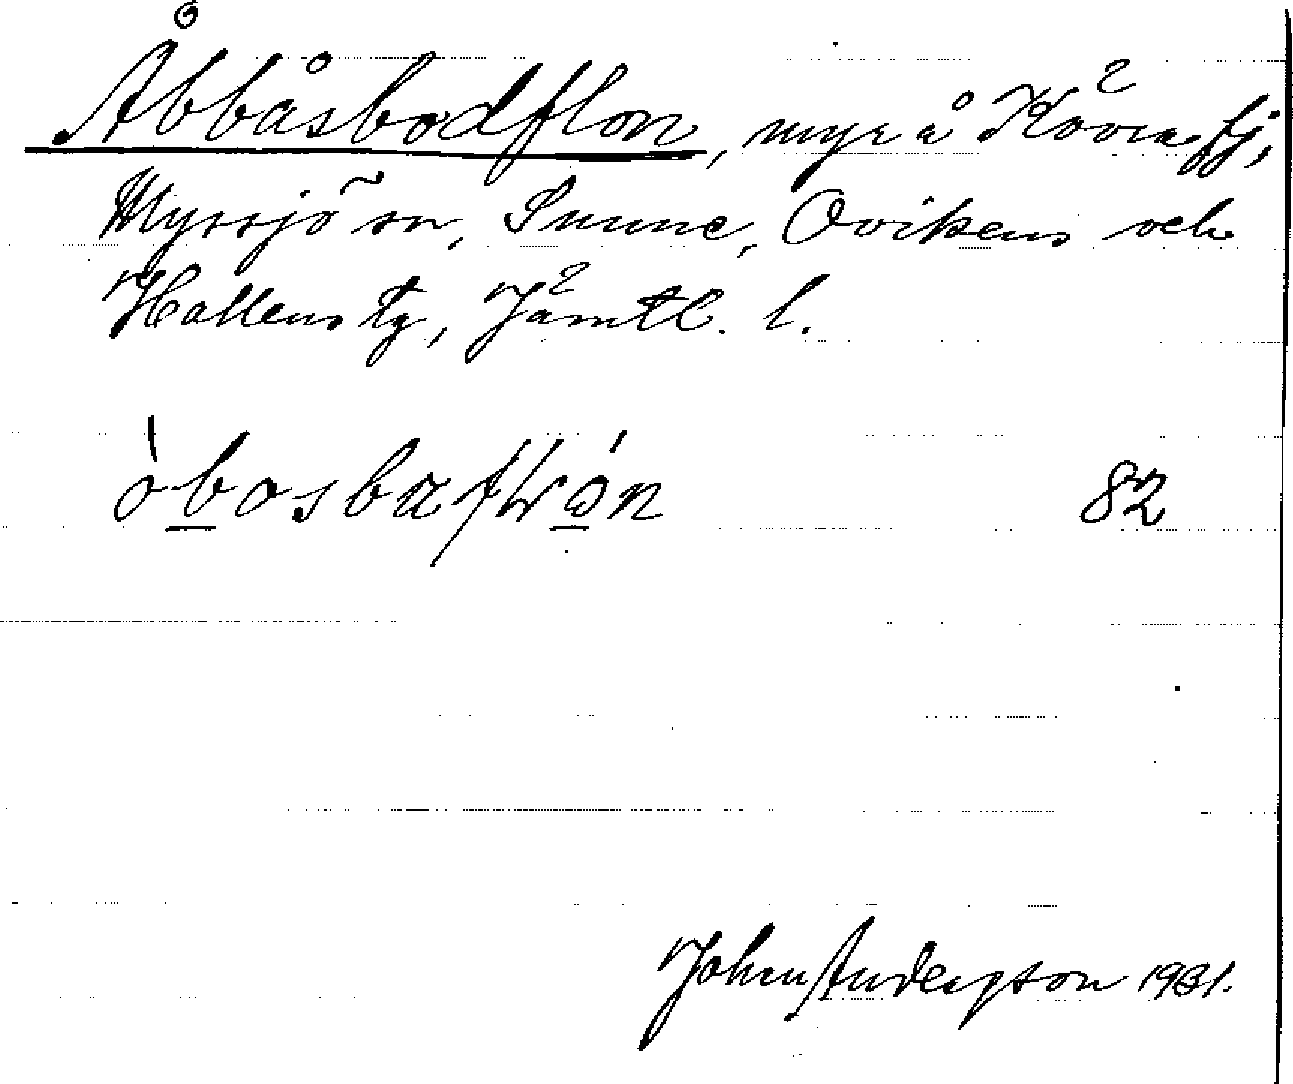 Åbbåsbodflon, myr å Kövra fj,
Myssjö sn, Sunne, Ovikens och
Hallens tg, Jämtl. l.
82
John Anderson 1931.